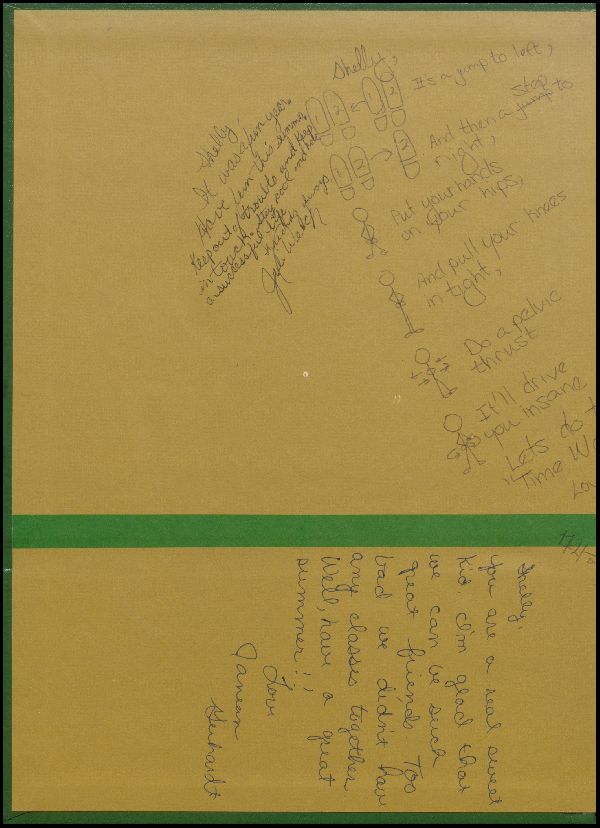 Shelly,
It was a fun year
Have fun this summer
Keep out of trouble and keep
in touch. Stay cool and have
a successful life
always,
Welch
Shelly,
1 2 1 2
It's a jump to left,
And then a jump step to
right,
1 2 3
Put your hands
on your hips,
And pull your knees
in tight,
Do a pelvic
thrust
It'll drive
you insane
Lets do t
"Time Wa
Lov
Shelly,
You are a real sweet
kid. I'm glad that
we can be such
great friends Too
bad we didn't have
any classes together.
Well, have a great
summer!!
Love
Janean
Gerhardt